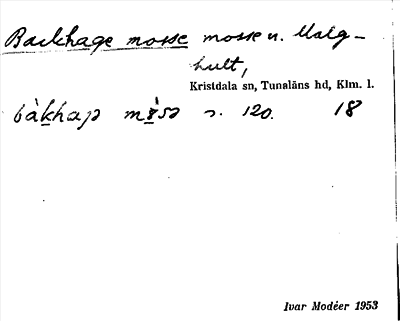 Backhage mosse mosse n. Malg-
hult,
Kristdala sn, Tunaläns hd, Klm. l.
bàkhaǝ mòsǝ n. 120. 18
Ivar Modéer 1953